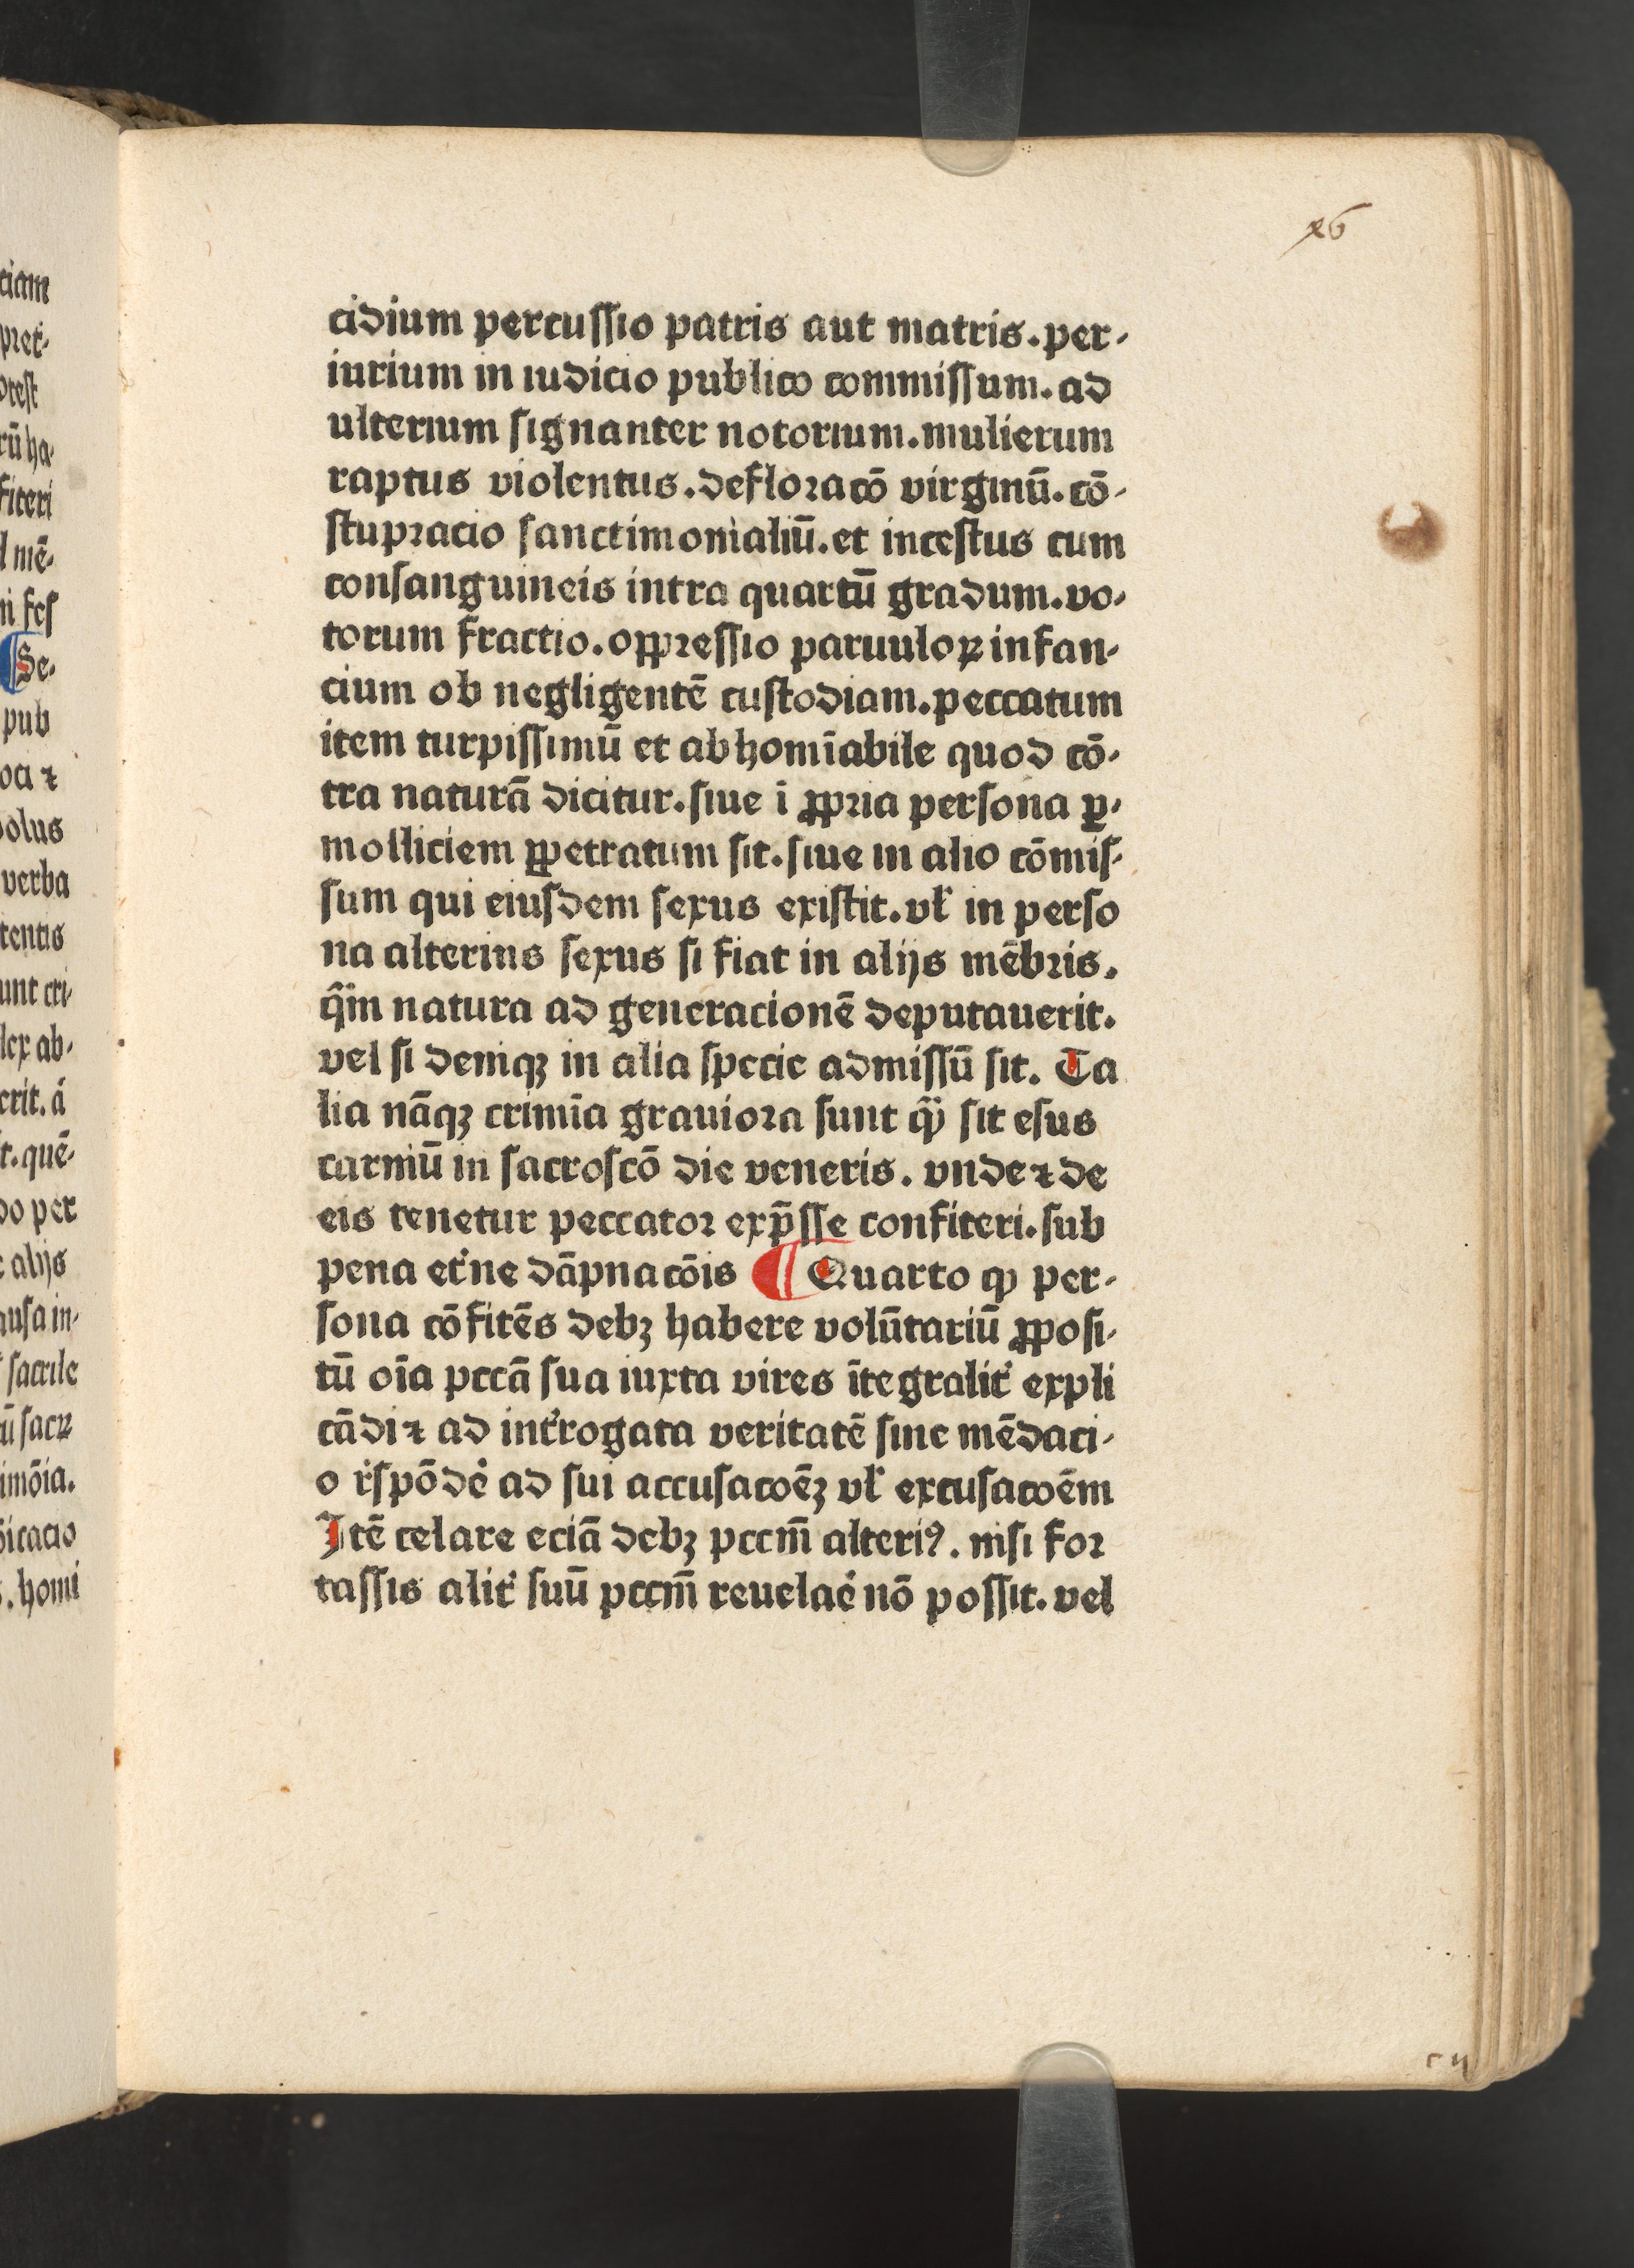 26
cidium percussio patris aut matris.per-
iurium in iudicio publico commissum.ad
ulterium signanter notorium.mulierum
raptus violentus.defloracō virginū.cō-
stupracio sanctimonialiū.et incestus cum
consanguineis intra quartū gradum.vo-
torum fractio.oppressio paruuloꝝ infan-
cium ob negligentē custodiam.peccatum
item turpissimū et abhomīabile quod cō-
tra naturā dicitur.siue ī ꝓpria persona ꝑ-
molliciem ꝑpetratum sit.siue in alio cōmis-
sum qui eiusdem sexus existit.vł in perso
na alterius sexus si fiat in alijs mēbris.
q̄m natura ad generacionē deputauerit.
vel si deniqꝫ in alia specie admissū sit. Ta
lia nāqꝫ crimīa grauiora sunt qͣ̄ sit esus
carniū in sacroscō die veneris. vnde ⁊ de
eis tenetur peccator exp̄sse confiteri.sub
pena et̾ne dāpnacōis ¶ Quarto ꝙ per-
sona cōfitēs debꝫ habere volūtariū ꝓposi-
tū oīa pccā sua iuxta vires ītegralit̾ expli
cādi ⁊ ad int̾rogata veritatē sine mēdaci-
o r̾spōde̾ ad sui accusacoēꝫ vł excusacoēm
Itē celare eciā debꝫ pccm̄ alteriꝰ. nisi for
tassis alit̾ suū pccm̄ reuelae̾ nō possit.vel